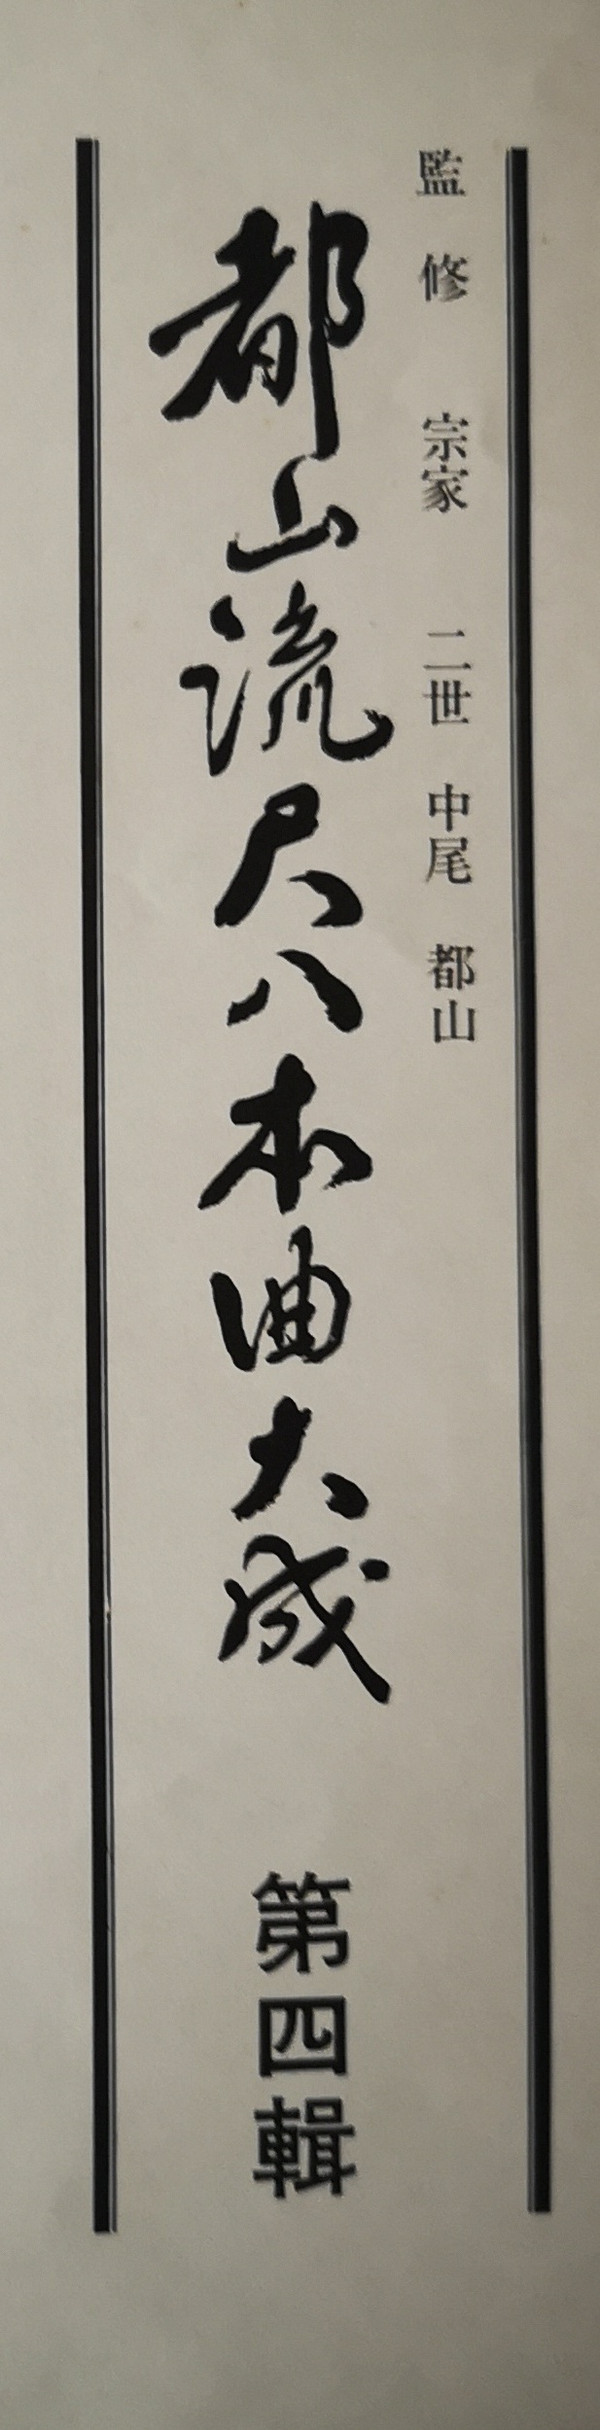 監修 宗家 二世 中尾 都山
都山流尺八本曲大成 第四輯